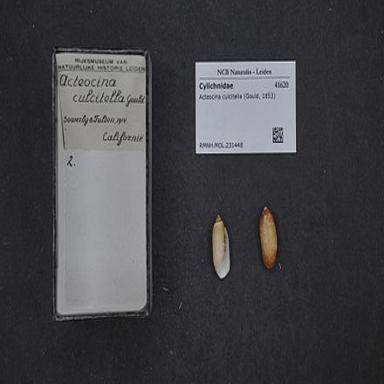 RIJKSMUSEUM VAN
NATUURLIJKE HISTORIE LEIDEN
Acteocina
culcitella Gould
Sowerby & Fulton,
Californië
2.
NCB Naturalis - Leiden
Cylichnidae 41620
Acteocina culcitella (Gould, 1853)
RMNH.MOL.231448